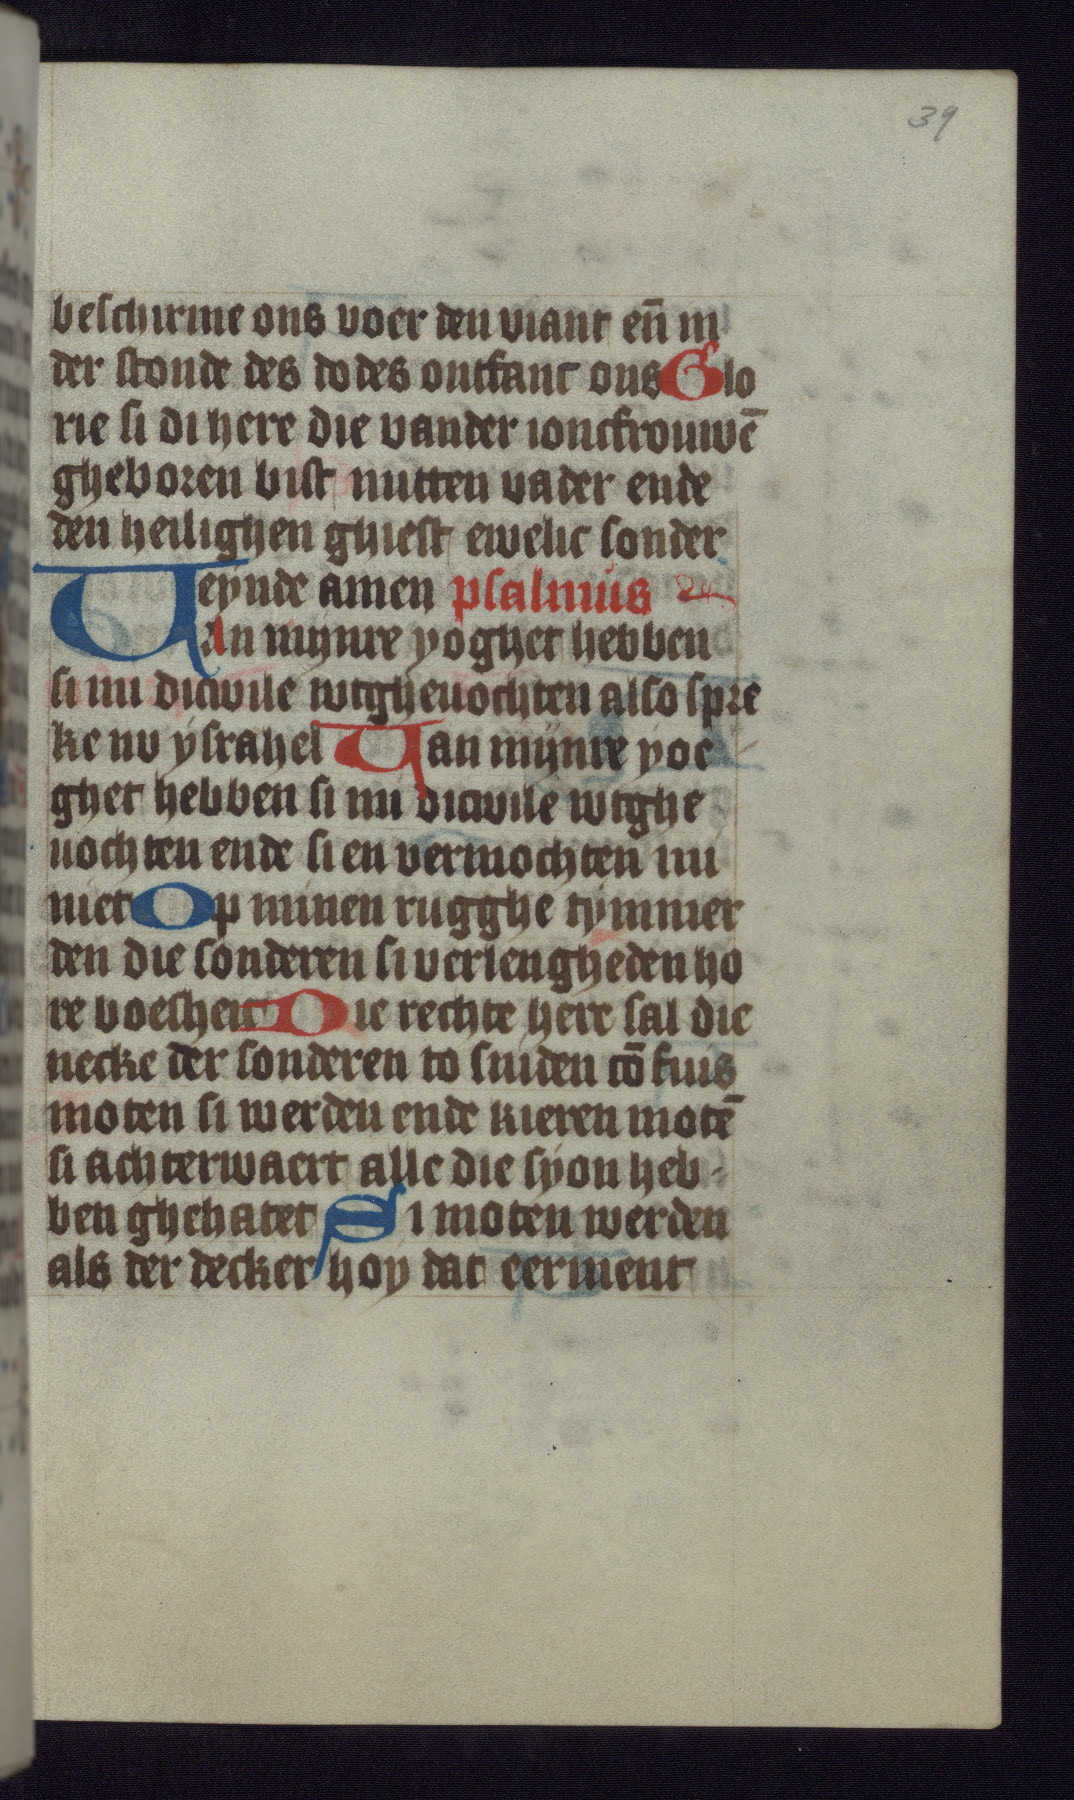 39
beschirme ons voer den viant en̄ in
der stonde des dodes ontfanc ons Glo
rie si di here die vander ioncfrouwē
gheboren bist mitten vader ende
den heilighen ghiest ewelic sonder
eynde amen psalmus
Van mynre yoghet hebben
si mi dicwile wtgheuochten also spre
ke nv ysrahel Van mynre yoe
ghet hebben si mi dicwile wtghe
uochten ende si en vermochten mi
niet Op minen rugghe tymmer
den die sonderen si verlengheden ho
re boesheit Die rechte here sal die
necke der sonderen to sniden cō fuis
moten si werden ende kieren motē
si achterwaert alle die syon heb-
ben ghehatet Si moten werden
als der decker hoy dat eerment